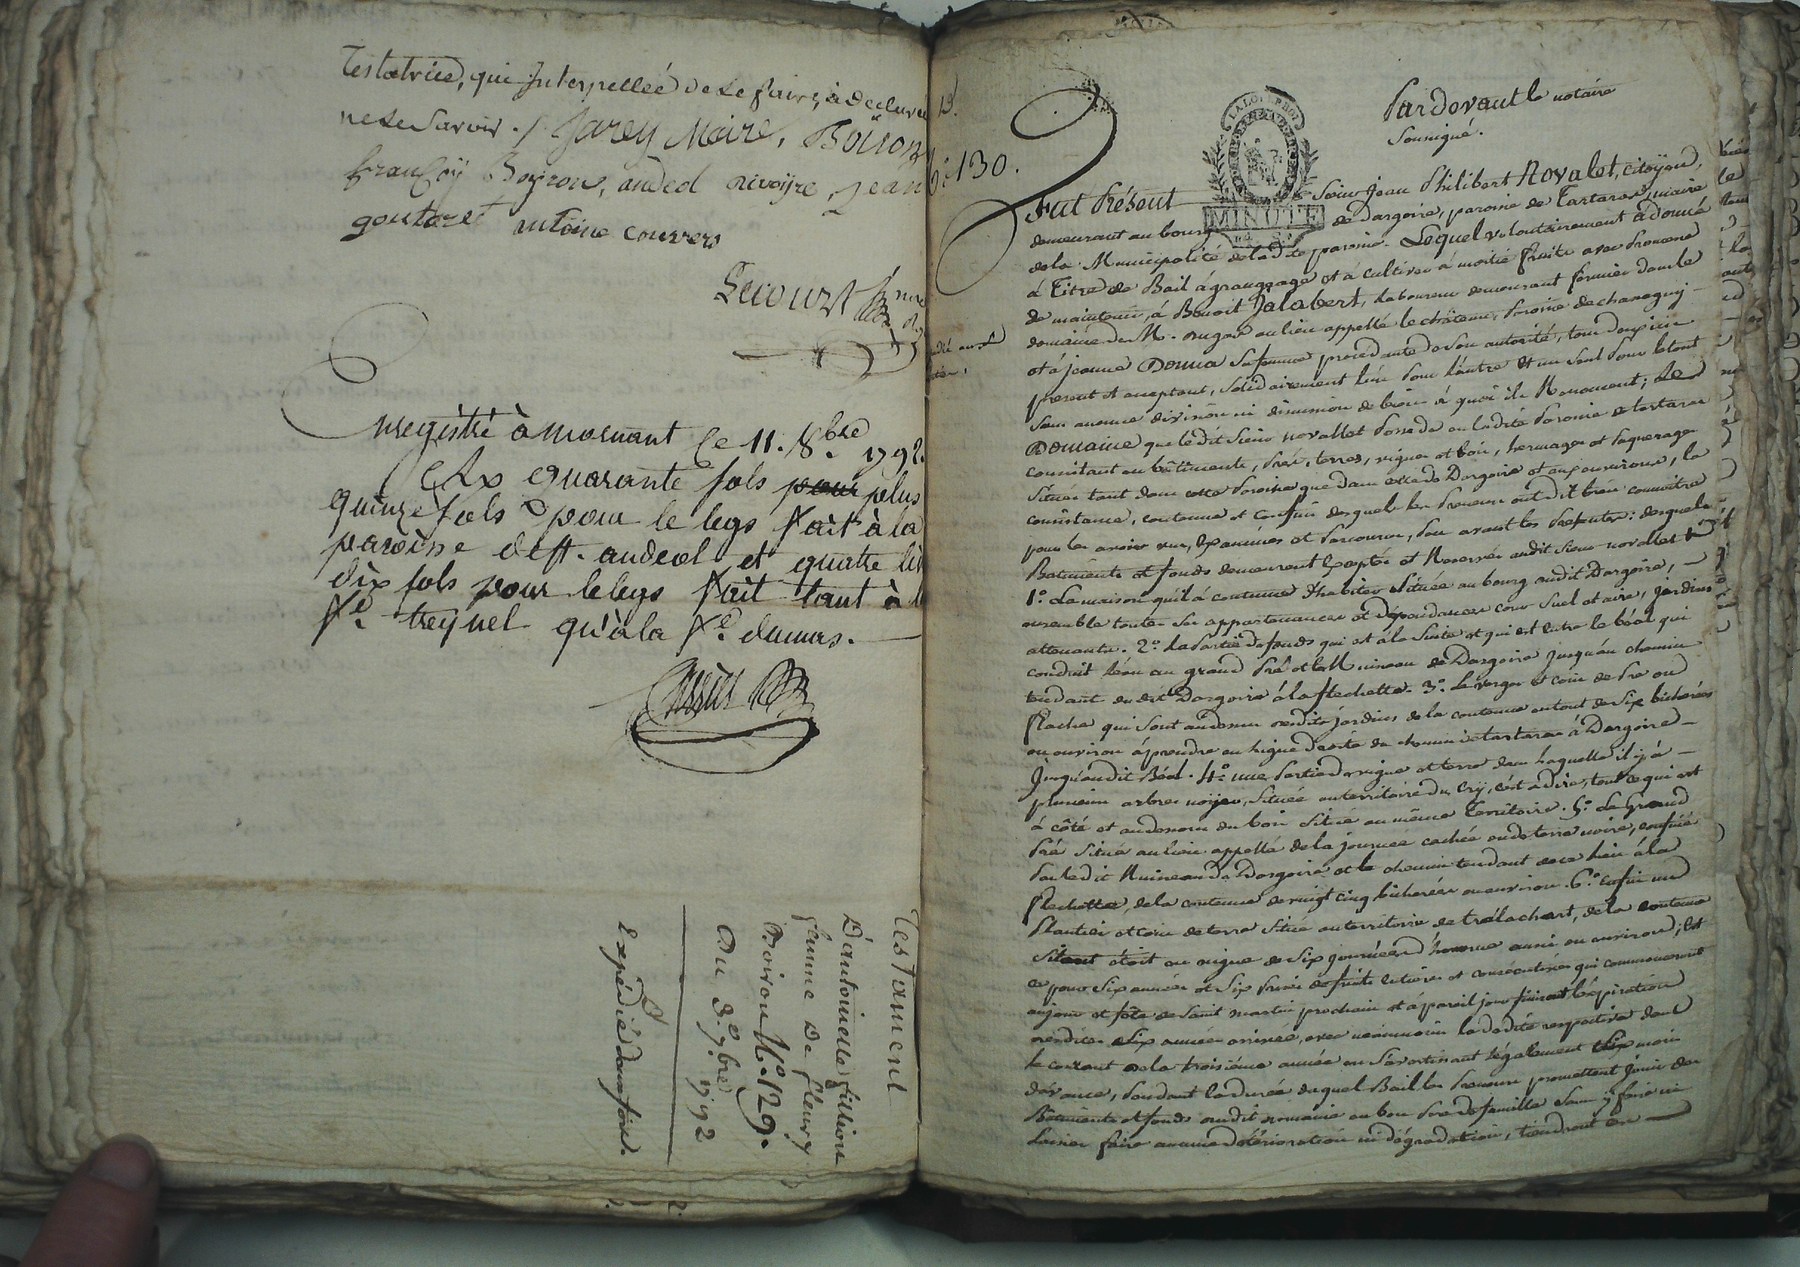 Testatrice, qui Interpellée de le faire, à declaré
ne le savoir. / Jarey Maire, Boiron
françoy Boyron, andéol rivoyre, jean
goutaret antoine couvers
Lecourt
Enregistré à mornant ce 11. 8bre 1792.
Rx quarante sols pour plus
quinze sols pour le legs fait à la
paroisse de st. andeol et quatre
dix sols pour le legs fait tant à
fe. treynel qu'à la fe. dumas.
Testament
D'antoinette fillion
femme De fleury
Boiron N.o 129.
Du 3. 7bre 1792
Expédié deux fois.
N.o 130.
LA LOI LE ROI
MINUTE
Pardevant le notaire
soussigné.
Fut Présent sieur Jean Philibert Novalet, citoyen,
demeurant au bourg de Dargoire, paroisse de Tartaras, maire
de la Municipalité de la dite paroisse. Lequel volontairement à donné
à Titre de Bail à grangeage et à cultiver à moitié fruits avec promesse
de maintenir, à Benoit Jalabert, laboureur demeurant fermier dans le
domaine de M. au lieu appellé le château, paroisse de
et à jeanne Donna sa femme procédante de son autorité, tous deux ici
present et acceptant, solidairement l'un pour l'autre et un seul pour le tout
sans aucune division ni discussion de biens à quoi ils Renoncent; Le
Domaine que le dit sieur novallet possede en la dite paroisse de tartaras
consistant en bâtiments, prés, terres, vignes et bois, hermages et paquerages
situés tant dans cette paroisse que dans celle de Dargoire et aux environs, la
consistance, contenue et confins desquels les preneurs ont dit bien connoitre
pour les avoir vus, examinés et parcourus, peu avant les présentes: desquels
Batiments et fonds demeurent exceptés et Reservés audit sieur novallet
1.o La maison qu'il à coutume d'habiter située au bourg dudit Dargoire,
ensemble toutes ses appartenances et dépendances cour suel et aire, jardins
attenants. 2.o La partie de fonds qui est à la suite et qui est entre le béal qui
conduit l'eau au grand pré et le Ruisseau de Dargoire jusqu'au chemin
tendant dudit Dargoire à la flechette. 3.o Le verger et coin de pré ou
flache qui sont au dessus desdits jardins de la contenue en tout de six bicherées
ou environ à prendre en ligne droite du chemin de tartaras à Dargoire
jusqu'audit Béal. 4.o une partie de vigne et terre dans laquelle il y à
plusieurs arbres noyers, située au territoire du Cry, c'est à dire, tout ce qui est
à côté et au dessous du bois situé au même Territoire. 5.o Le Grand
Pré situé au lieu appellé de la journée cachée ou de terre noire, confiné
par le dit Ruisseau de Dargoire et le chemin tendant de ce lieu à la
flechette, de la contenue de vingt cinq bicherées ou environ. 6.o enfin un
Plantier et coin de terre situé au territoire de de la contenue
en vigne de six journées d'homme aussi ou environ; Et
ce pour six années et six prises de fruits entières et consécutives qui commenceront
au jour et fête de saint martin prochain et à pareil jour finiront l'expiration
desdites six années arrivée, avec néanmoins la dedite respective dans
le courant de la troisième année en s'avertissant légalement six mois
d'avance, pendant la durée duquel Bail les preneurs promettent jouir des
Bâtiments et fonds dudit domaine en bon pere de famille sans y faire ni
laisser faire aucune détérioration ni dégradation, tiendront en